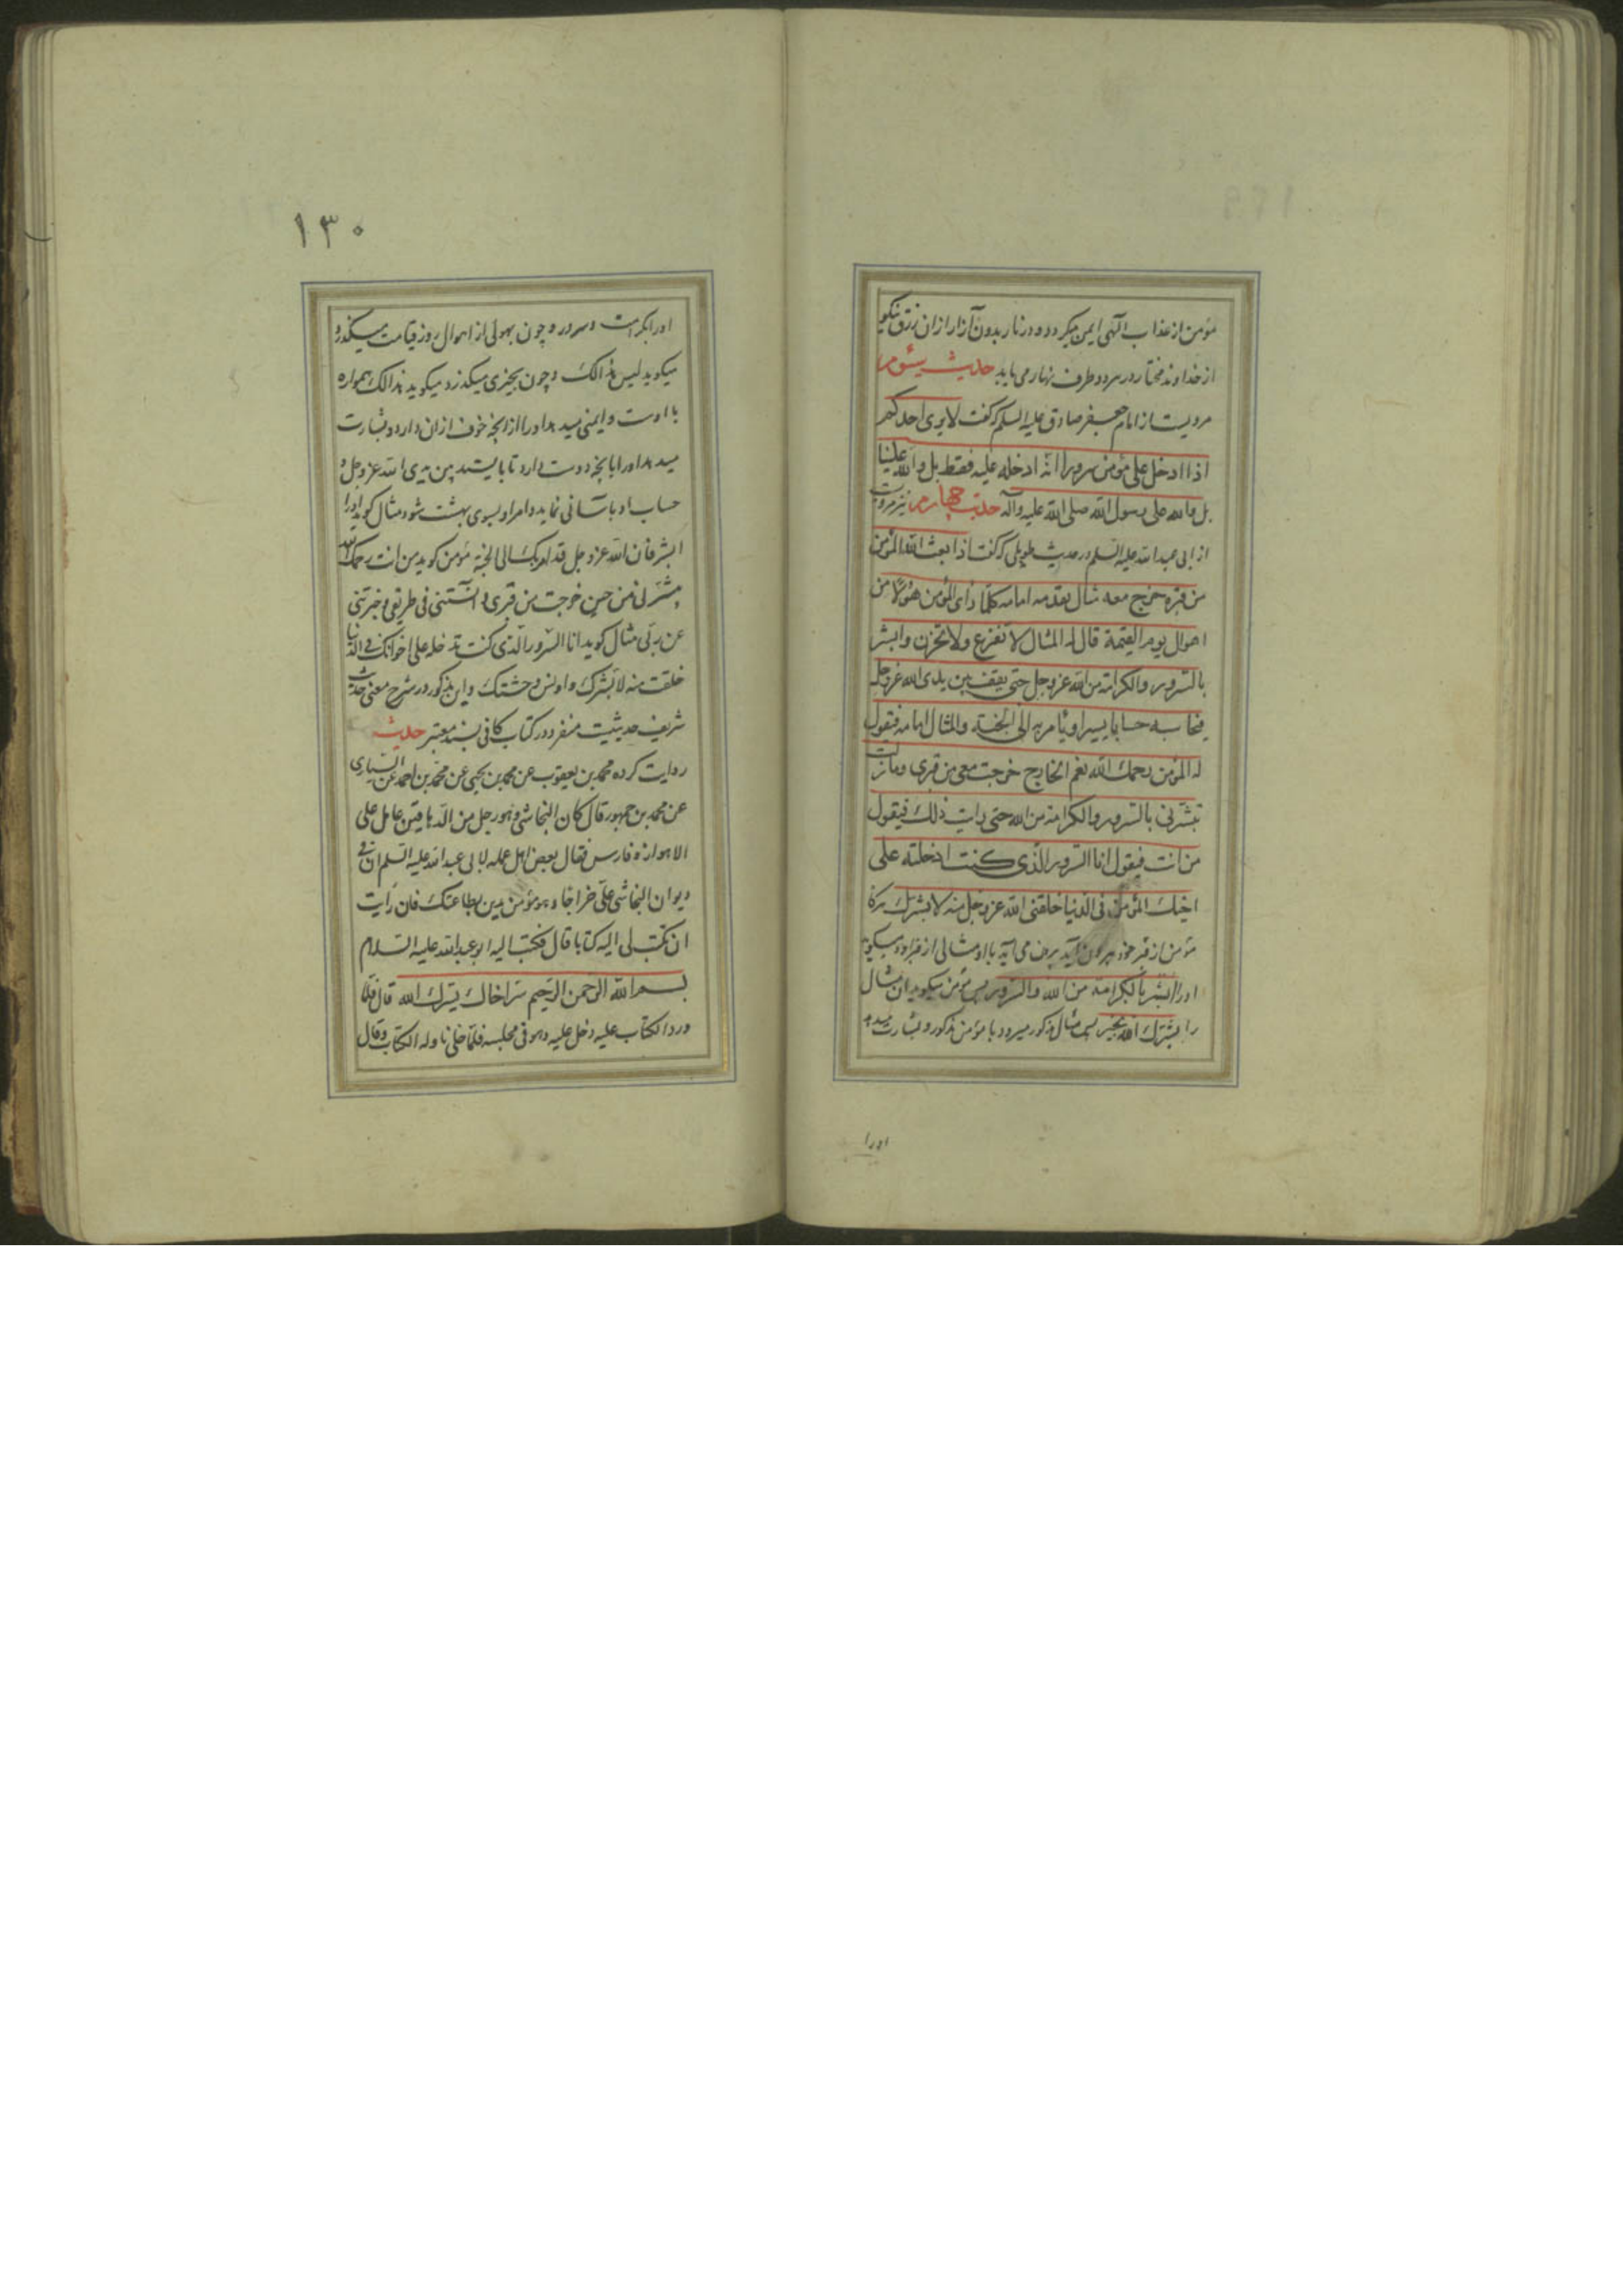 مؤمن از عذاب الهی ایمن میکردد و در نار بدون آزار ازان رزق نیکو
از خداوند مختار در هر دو طرف نهار می یابد حدیث سیّوم
مرویست از امام جعفر صادق علیه السلم که گفت لا یری احدکم
اذا ادخل علی مؤمن سرورا انّه ادخله علیه فقط بل و الله علینا
بل و الله علی رسول الله صلی الله علیه و آله حدیث چهارم نیز مرویست
از ابی عبدالله علیه السلم در حدیث طویلی که گفت اذا بعث الله المؤمن
من قبره خرج معه مثال یقدمه امامه کلّما رای المؤمن هولا من
اهوال یوم القیمة قال له المثال لا تفزع ولا تحزن وابشر
بالسّرور والکرامة من الله عز وجل حتی یقف بین یدی الله عزوجل
فیحاسبه حسابا یسیرا و یأمر به الی الجنّة والمثال امامه فیقول
له المؤمن رحمك الله نعم الخارج خرجت معی من قبری ومازلت
تبشّرنی بالسّرور والکرامة من الله حتی رایت ذلك فیقول
من انت فیقول انا السّرور الّذی کنت ادخلته علی
اخیك المؤمن فی الدنیا خلقنی الله عزوجل منه لابشرك هرکاه
مؤمن از قبر خود بیرون آید برون می آید با او مثالی از قبر او و میکوید
اورا ابشر بالکرامة من الله والسّرور پس مؤمن میکوید ان مثال
را بشّرك الله بخیر پس مثال مذکور میرود با مؤمن مذکور و بشارت میدهد
اورا
۱۳۰
اورا بکرامت و سرور و چون بهولی از اهوال روز قیامت میکذرد
میکوید لیس هذا لک و چون بخیری میکذرد میکوید هذا لک همواره
با اوست و ایمنی میدهد اورا از انچه خوف ازان دارد و بشارت
میدهد اورا بانچه دوست دارد تا بایستد بین یدی الله عز وجل و
حساب او باسانی نماید و امر او بسوی بهشت شود مثال کوید اورا
ابشر فان الله عز وجل قد امر بک الی الجنة مؤمن کوید من انت رحمک الله
بشّرنی من حین خرجت من قبری و انستنی فی طریقی و خبرتنی
عن ربّی مثال کوید انا السّرور الّذی کنت تدخله علی اخوانک فی الدنیا
خلقت منه لابشرک و اونس وحشتک و این مذکور در شرح معنی حدیث
شریف حدیثیست منفرد در کتاب کافی بسند معتبر حدیث
روایت کرده محمد بن یعقوب عن محمد بن یحیی عن محمد بن احمد عن السّیاری
عن محمد بن جمهور قال کان النجاشی و هو رجل من الدّهاقین عامل علی
الاهواز و فارس فقال بعض اهل عمله لابی عبدالله علیه السّلم ان فی
دیوان النجاشی علیّ خراجا و هو مؤمن یدین بطاعتک فان رأیت
ان تکتب لی الیه کتابا قال فکتب الیه ابو عبدالله علیه السّلام
بسم الله الرّحمن الرّحیم سرّ اخاك یسّرك الله قال فلمّا
ورد الکتاب علیه دخل علیه و هو فی مجلسه فلمّا خلی ناوله الکتاب وقال